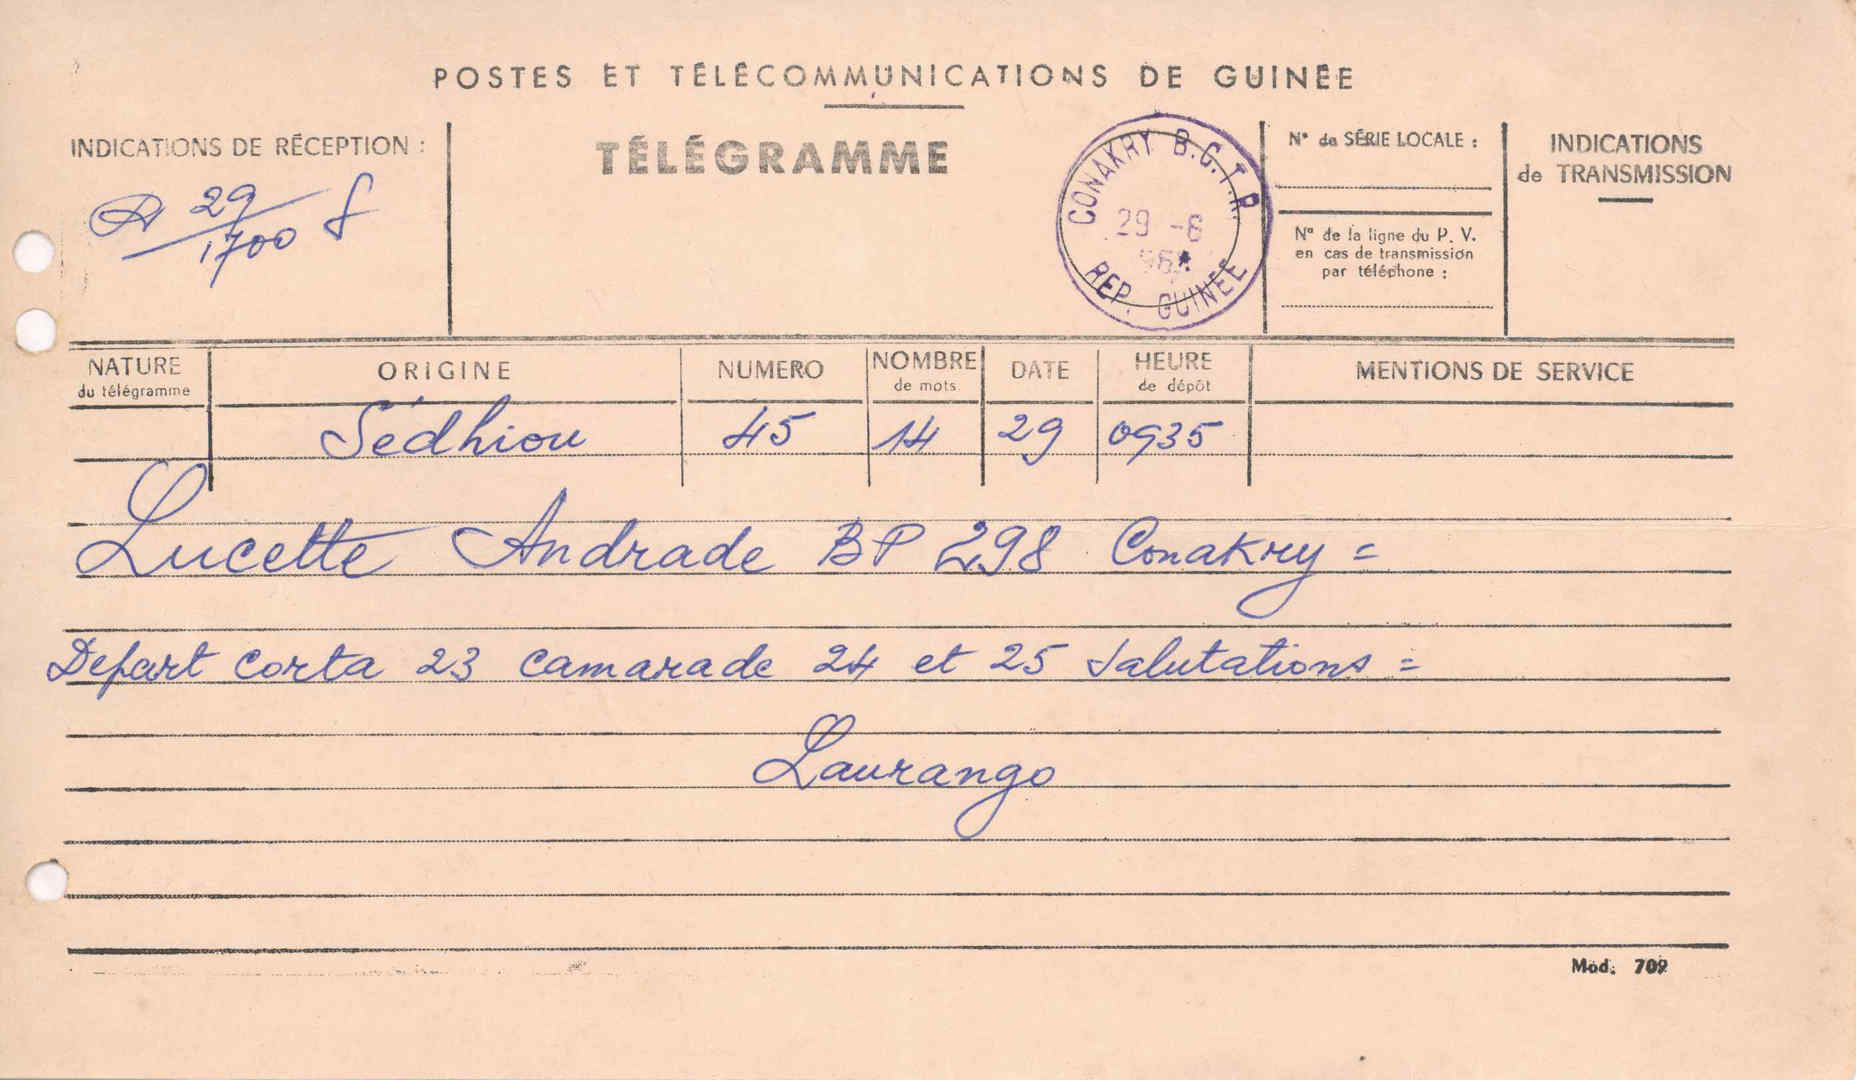 POSTES ET TÉLÉCOMMUNICATIONS DE GUINÉE
INDICATIONS DE RÉCEPTION :
29
1700
TÉLÉGRAMME
CONAKRY B.C.T.R.
29 -6
REP. GUINÉE
N° de SÉRIE LOCALE :
N° de la ligne du P. V.
en cas de transmission
par téléphone :
INDICATIONS
de TRANSMISSION
NATURE
du télégramme
ORIGINE
NUMERO
NOMBRE
de mots
DATE
HEURE
de dépôt
MENTIONS DE SERVICE
Sédhiou 45 14 29 0935
Lucette Andrade BP 298 Conakry =
Depart corta 23 camarade 24 et 25 Salutations =
Laurango
Mod. 709